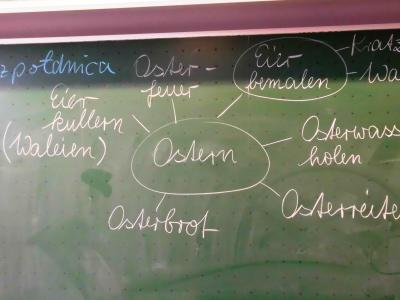 połdnica
Oster-
feuer
Eier
bemalen
Kratz
Wa
Eier
kullern
(Waleien)
Ostern
Osterwass
holen
Osterbrot
Osterreite